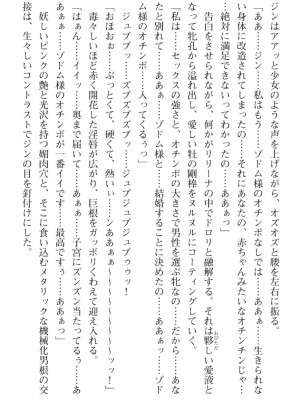 ジンはアアッと少女のような声を上げながら、オズオズと腰を左右に振る。
「ああ……ジン、私はもう……ゾドム様のオチンポなしでは……ああぁ……生きられな
い身体に改造されてしまったの……それにあなたの、赤ちゃんみたいなオチンチンじゃ…
…絶対に満足できないってわかったの……ああぁっ」
告白をさせられながら、何かがリリーナの中でドロリと融解する。それは夥しい愛液と
おびただ
なって牝孔から溢れ出し、愛しい牡の剛棒をヌルヌルにコーティングしていく。
「私は……セックスの強さと、オチンポの大きさで男性を選ぶ牝なの……だから……あな
たと別れて……ああぁぁ……ゾドム様と……結婚することに決めたの……ああぁっ、ゾド
ム様のオチンポ……入ってくるぅっ」
ジュブブッ……ズブズブズブッ……ジュブジュブジュブゥゥッ！
「おほぉぉ……ぶっとくて、硬くて、熱いぃ……ンああぁぁ～～～～～～ッッ！」
毒々しいほど赤く開花した淫唇が広がり、巨根をガッポリくわえて迎え入れる。
「はぁぁん……イイッ……奥まで届いて……あぁぁ……子宮にズンズン当たってるぅ……あ
ああぁ……ゾドム様のオチンポが一番イイです……最高ですぅ……ああぁっ」
妖しいピンクの艶と光沢を持つ媚肉穴と、そこに食い込むメタリックな機械化男根の交
接は、生々しいコントラストでジンの目を釘付けにした。